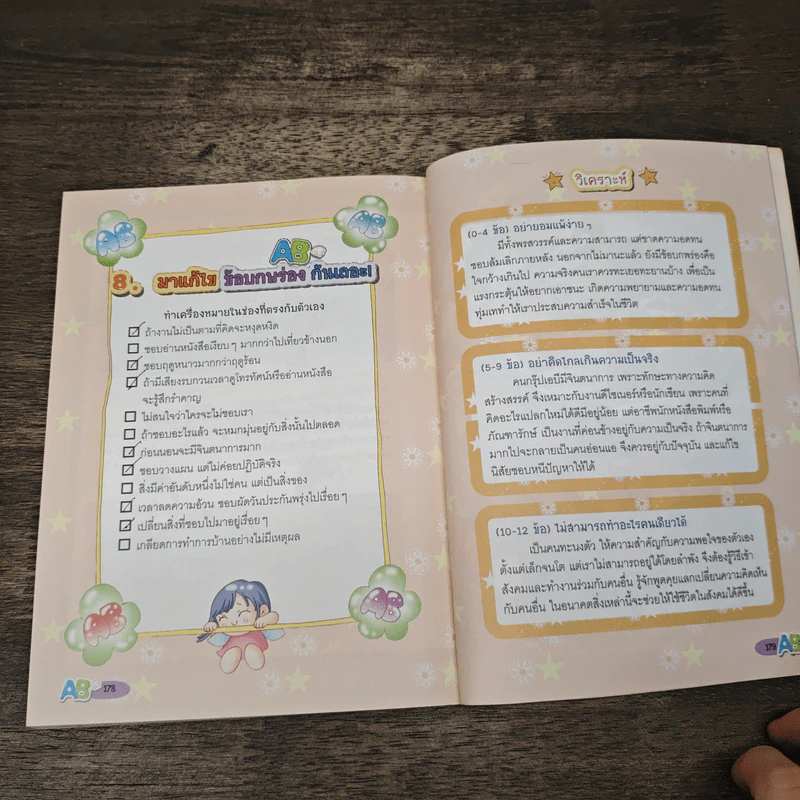 AB
AB
AB
8. มาแก้ไข ข้อบกพร่อง กันเถอะ!
ทำเครื่องหมายในช่องที่ตรงกับตัวเอง
ถ้างานไม่เป็นตามที่คิดจะหงุดหงิด
ชอบอ่านหนังสือเงียบๆ มากกว่าไปเที่ยวข้างนอก
ชอบฤดูหนาวมากกว่าฤดูร้อน
ถ้ามีเสียงรบกวนเวลาดูโทรทัศน์หรืออ่านหนังสือ
จะรู้สึกรำคาญ
ไม่สนใจว่าใครจะไม่ชอบเรา
ถ้าชอบอะไรแล้ว จะหมกมุ่นอยู่กับสิ่งนั้นไปตลอด
ก่อนนอนจะมีจินตนาการมาก
ชอบวางแผน แต่ไม่ค่อยปฏิบัติจริง
สิ่งมีค่าอันดับหนึ่งไม่ใช่คน แต่เป็นสิ่งของ
เวลาลดความอ้วน ชอบผัดวันประกันพรุ่งไปเรื่อยๆ
เปลี่ยนสิ่งที่ชอบไปมาอยู่เรื่อยๆ
เกลียดการทำการบ้านอย่างไม่มีเหตุผล
AB
AB
AB 178
วิเคราะห์
(0-4 ข้อ) อย่ายอมแพ้ง่ายๆ
มีทั้งพรสวรรค์และความสามารถ แต่ขาดความอดทน
ชอบล้มเลิกภายหลัง นอกจากไม่มานะแล้ว ยังมีข้อบกพร่องคือ
ใจกว้างเกินไป ความจริงคนเราควรทะเยอทะยานบ้าง เพื่อเป็น
แรงกระตุ้นให้อยากเอาชนะ เกิดความพยายามและความอดทน
ทุ่มเททำให้เราประสบความสำเร็จในชีวิต
(5-9 ข้อ) อย่าคิดไกลเกินความเป็นจริง
คนกรุ๊ปเอบีมีจินตนาการ เพราะทักษะทางความคิด
สร้างสรรค์ จึงเหมาะกับงานดีไซเนอร์หรือนักเขียน เพราะคนที่
คิดอะไรแปลกใหม่ได้ดีมีอยู่น้อย แต่อาชีพนักหนังสือพิมพ์หรือ
ภัณฑารักษ์ เป็นงานที่ค่อนข้างอยู่กับความเป็นจริง ถ้าจินตนาการ
มากไปจะกลายเป็นคนอ่อนแอ จึงควรอยู่กับปัจจุบัน และแก้ไข
นิสัยชอบหนีปัญหาให้ได้
(10-12 ข้อ) ไม่สามารถทำอะไรคนเดียวได้
เป็นคนทะนงตัว ให้ความสำคัญกับความพอใจของตัวเอง
ตั้งแต่เล็กจนโต แต่เราไม่สามารถอยู่ได้โดยลำพัง จึงต้องรู้วิธีเข้า
สังคมและทำงานร่วมกับคนอื่น รู้จักพูดคุยแลกเปลี่ยนความคิดเห็น
กับคนอื่น ในอนาคตสิ่งเหล่านี้จะช่วยให้ใช้ชีวิตในสังคมได้ดีขึ้น
179 AB